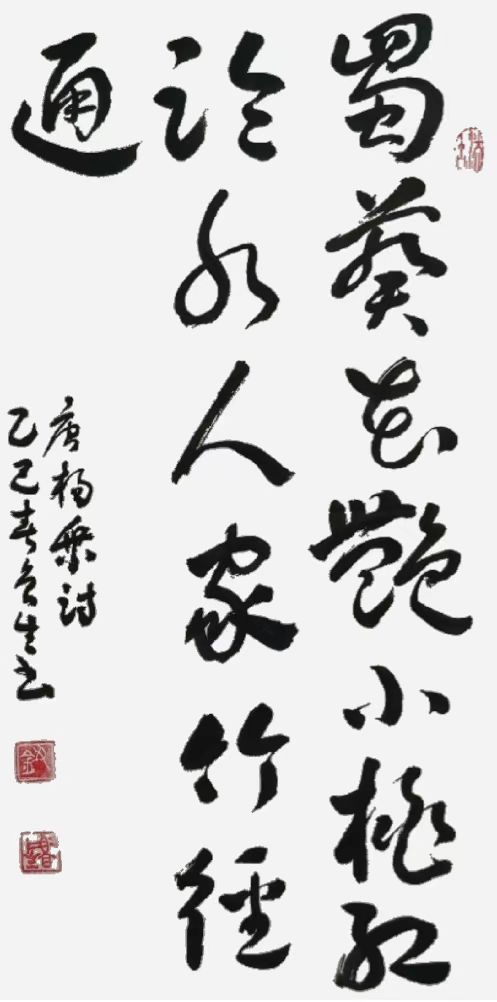 蜀葵花艷小桃紅
臨水人家竹徑
通
唐楊乘詩
乙巳春生書